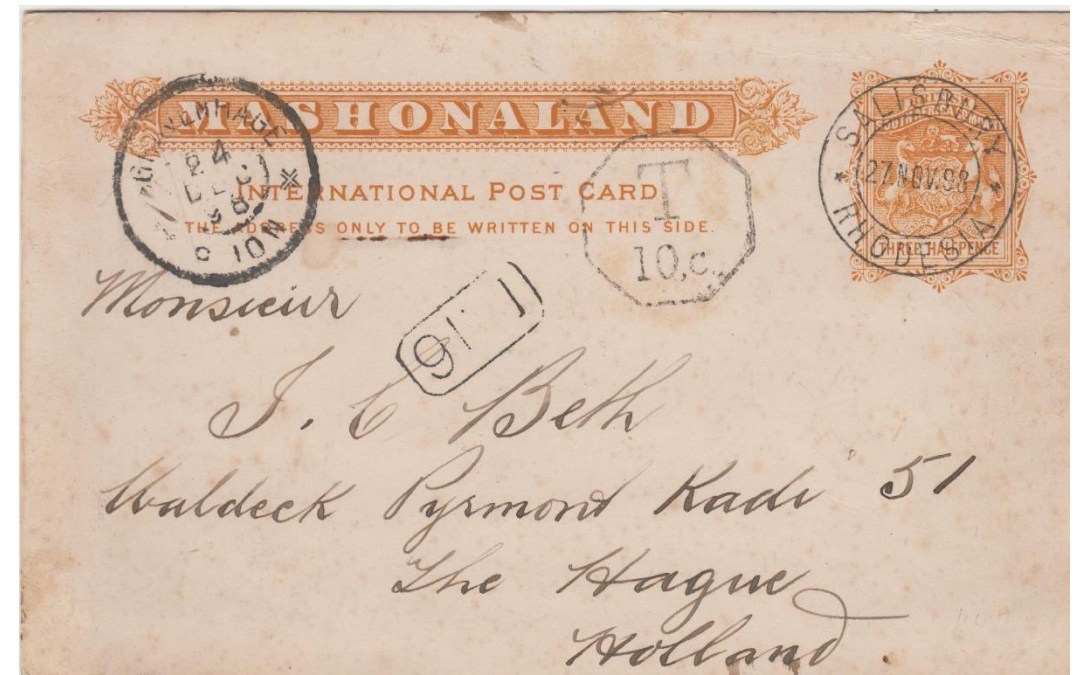 MASHONALAND
INTERNATIONAL POST CARD
THE ADDRESS ONLY TO BE WRITTEN ON THIS SIDE.
SALISBURY
27 NOV. 98
RHODESIA
THREE HALFPENCE
GRAVENHAGE
24
DEC
98
T
10,c.
91
Monsieur
J. C Beth
Waldeck Pyrmont Kade 51
The Hague
Holland.